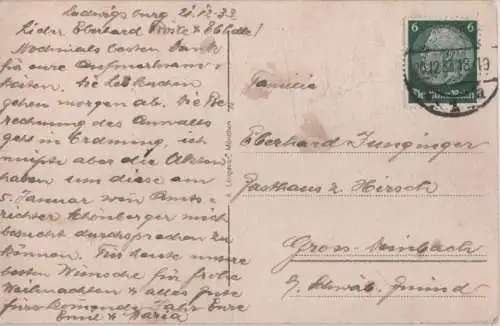 Ludwigsburg 21.12.33
Lieber Eberhard
Nochmals besten Dank
für eure Aufmerksam=
keiten. Die Lebkuchen
gehen morgen ab. Die Be
rechnung des Anwalts
geht in Ordnung, ich
müsste aber die Akten
haben um diese am
5. Januar vom Amts=
richter Schönberger mich
besucht durchsprechen zu
können. Für heute unsere
besten Wünsche für frohe
Weihnachten & alles Gute
fürs kommende Jahr Eure
Emil & Maria
Familie
Eberhard Junginger
Gasthaus z. Hirsch
Gross-Deinbach
b/ Schwäb. Gmünd
6 6